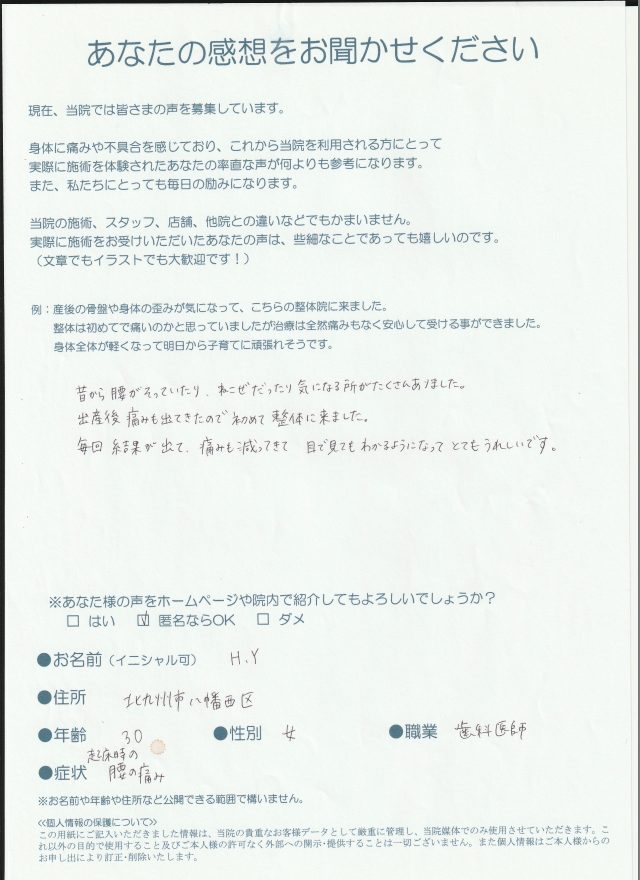 あなたの感想をお聞かせください
現在、当院では皆さまの声を募集しています。
身体に痛みや不具合を感じており、これから当院を利用される方にとって
実際に施術を体験されたあなたの率直な声が何よりも参考になります。
また、私たちにとっても毎日の励みになります。
当院の施術、スタッフ、店舗、他院との違いなどでもかまいません。
実際に施術をお受けいただいたあなたの声は、些細なことであっても嬉しいのです。
（文章でもイラストでも大歓迎です！）
例：産後の骨盤や身体の歪みが気になって、こちらの整体院に来ました。
整体は初めてで痛いのかと思っていましたが治療は全然痛みもなく安心して受ける事ができました。
身体全体が軽くなって明日から子育てに頑張れそうです。
昔から腰がそっていたり、ねこぜだったり気になる所がたくさんありました。
出産後痛みも出てきたので初めて整体に来ました。
毎回結果が出て、痛みも減ってきて目で見てもわかるようになってとてもうれしいです。
※あなた様の声をホームページや院内で紹介してもよろしいでしょうか？
□ はい ☑ 匿名ならOK □ ダメ
●お名前（イニシャル可） H.Y
●住所 北九州市八幡西区
●年齢 30 ●性別 女 ●職業 歯科医師
起床時の
●症状 腰の痛み
※お名前や年齢や住所など公開できる範囲で構いません。
≪個人情報の保護について≫
この用紙にご記入いただきました情報は、当院の貴重なお客様データとして厳重に管理し、当院媒体でのみ使用させていただきます。こ
れ以外の目的で使用すること及びご本人様の許可なく外部への開示・提供することは一切ございません。また個人情報はご本人様からの
お申し出により訂正・削除いたします。